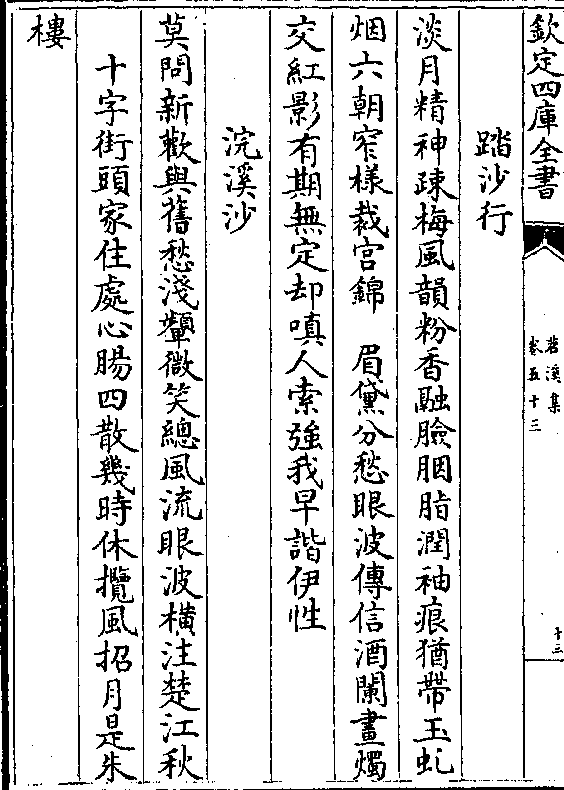 欽定四庫全書
苕溪集
卷五十三
十三
踏沙行
淡月精神疎梅風韻粉香融臉胭脂潤袖痕猶帶玉虬
烟六朝窄樣裁宮錦　眉黛分愁眼波傳信酒闌畫燭
交紅影有期無定却嗔人索強我早諧伊性
浣溪沙
莫問新歡與舊愁淺顰微笑總風流眼波橫注楚江秋
十字街頭家住處心腸四散幾時休攬風招月是朱
樓